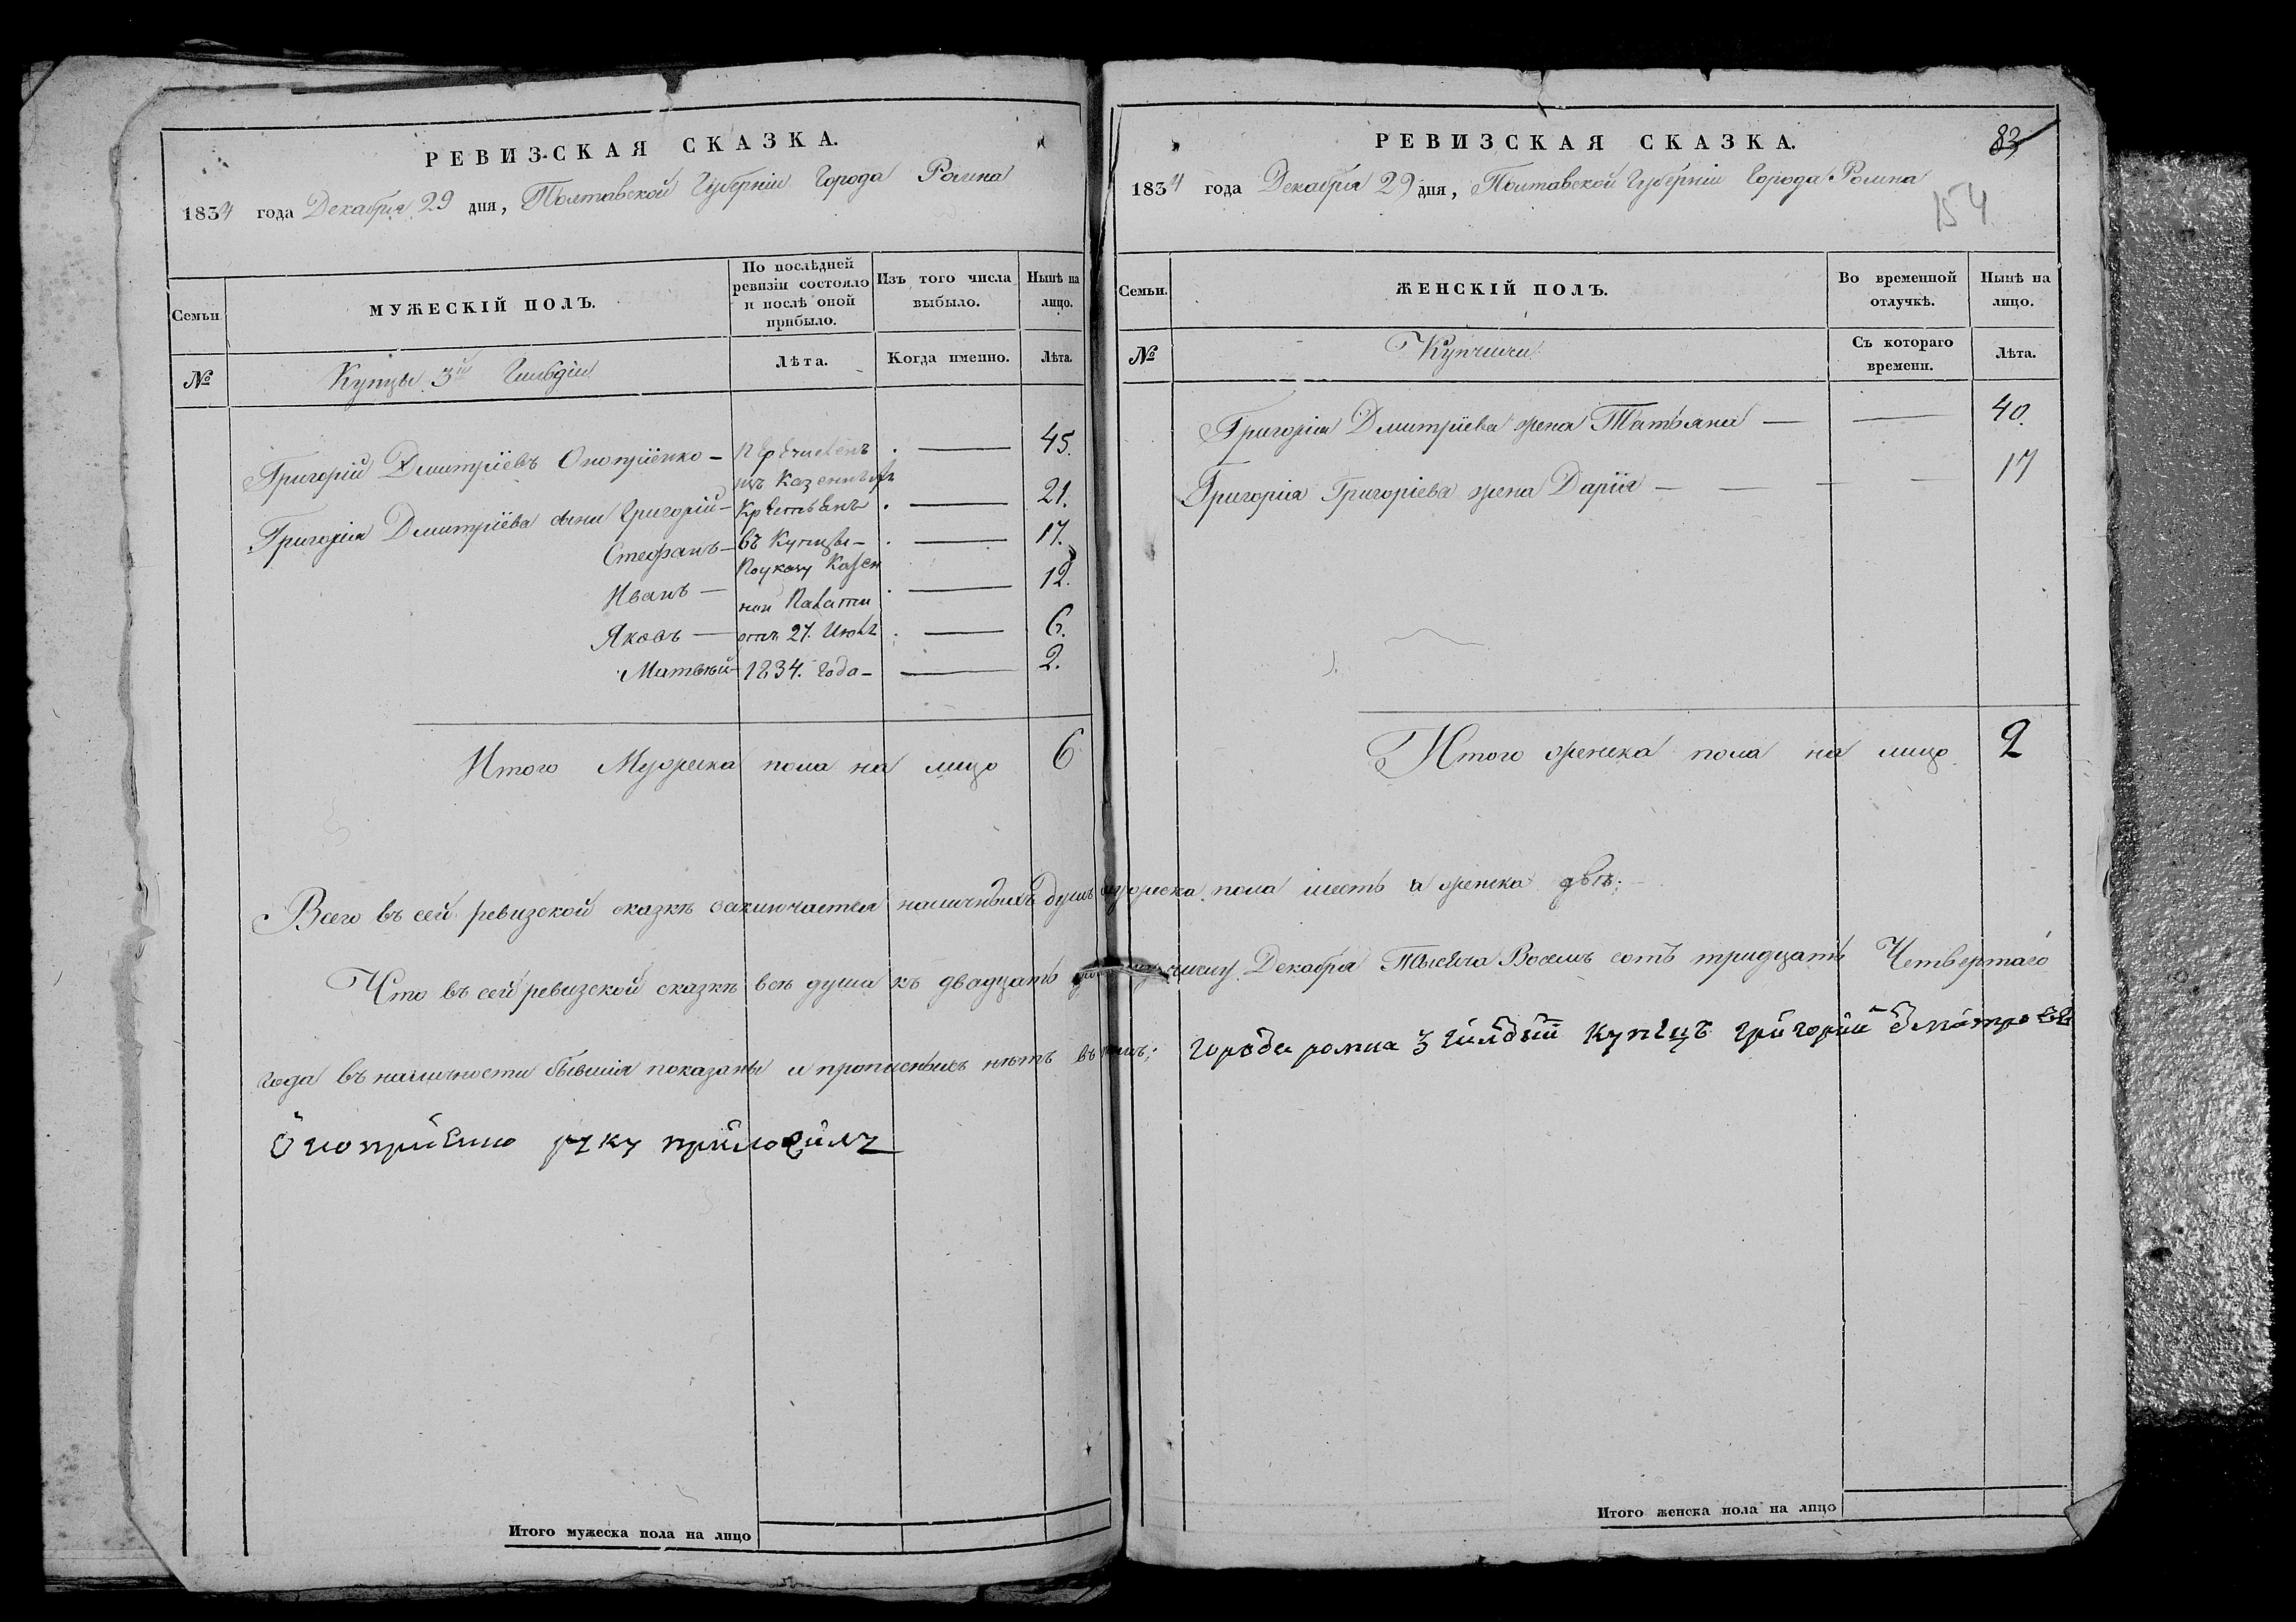 РЕВИЗСКАЯ СКАЗКА.
1834 года Декабря 29 дня, Полтавской Губерніи Города Ромна
Семьи.
МУЖЕСКІЙ ПОЛЪ.
По послѣдней ревизіи состояло и послѣ оной прибыло.
Изъ того числа выбыло.
Нынѣ на лицо.
№
Купцы 3й Гильдіи
Лѣта.
Когда именно.
Лѣта.
Григорій Дмитріевъ Оноприенко — 45.
Перечисленъ
изъ Казенныхъ
Григорія Дмитріева сыны Григорій — Крестьянъ 21.
Стефанъ — въ Купцы — 17.
По указу Казен
Иванъ — 12.
ной Палаты
Яковъ — отъ 27. Июля 6.
Матвѣй — 1834. Года — 2.
Итого Мужеска пола на лицо 6
Итого мужеска пола на лицо
РЕВИЗСКАЯ СКАЗКА.
83
1834 года Декабря 29 дня, Полтавской Губерніи Города Ромна
154
Семьи.
ЖЕНСКІЙ ПОЛЪ.
Во временной отлучкѣ.
Нынѣ на лицо.
№
Купчихи
Съ котораго времени.
Лѣта.
Григорія Дмитріева жена Татьяна — 40.
Григорія Григоріева жена Дарія — 17
Итого женска пола на лицо 2
Всего въ сей ревизской сказкѣ заключается наличныхъ душъ мужеска пола шесть а женска двѣ;
Что въ сей ревизской сказкѣ всѣ душа къ двадцать числу Декабря Тысеча Восемь сотъ тридцать Четвертаго
года въ наличности бывшія показаны и прописныхъ нѣтъ въ томъ; города ромна 3 гилдыи купецъ григорий дмитровъ
Оноприенко руку приложилъ
Итого женска пола на лицо